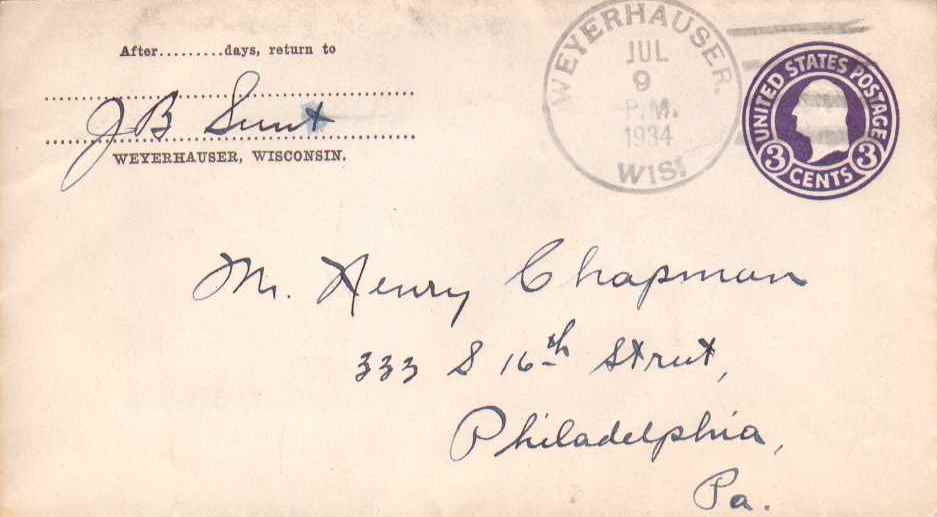 After.........days, return to
J B
WEYERHAUSER, WISCONSIN.
WEYERHAUSER.
JUL
9
P.M.
1934
WIS.
UNITED STATES POSTAGE
3 CENTS 3
Mr. Henry Chapman
333 S 16th Street,
Philadelphia,
Pa.